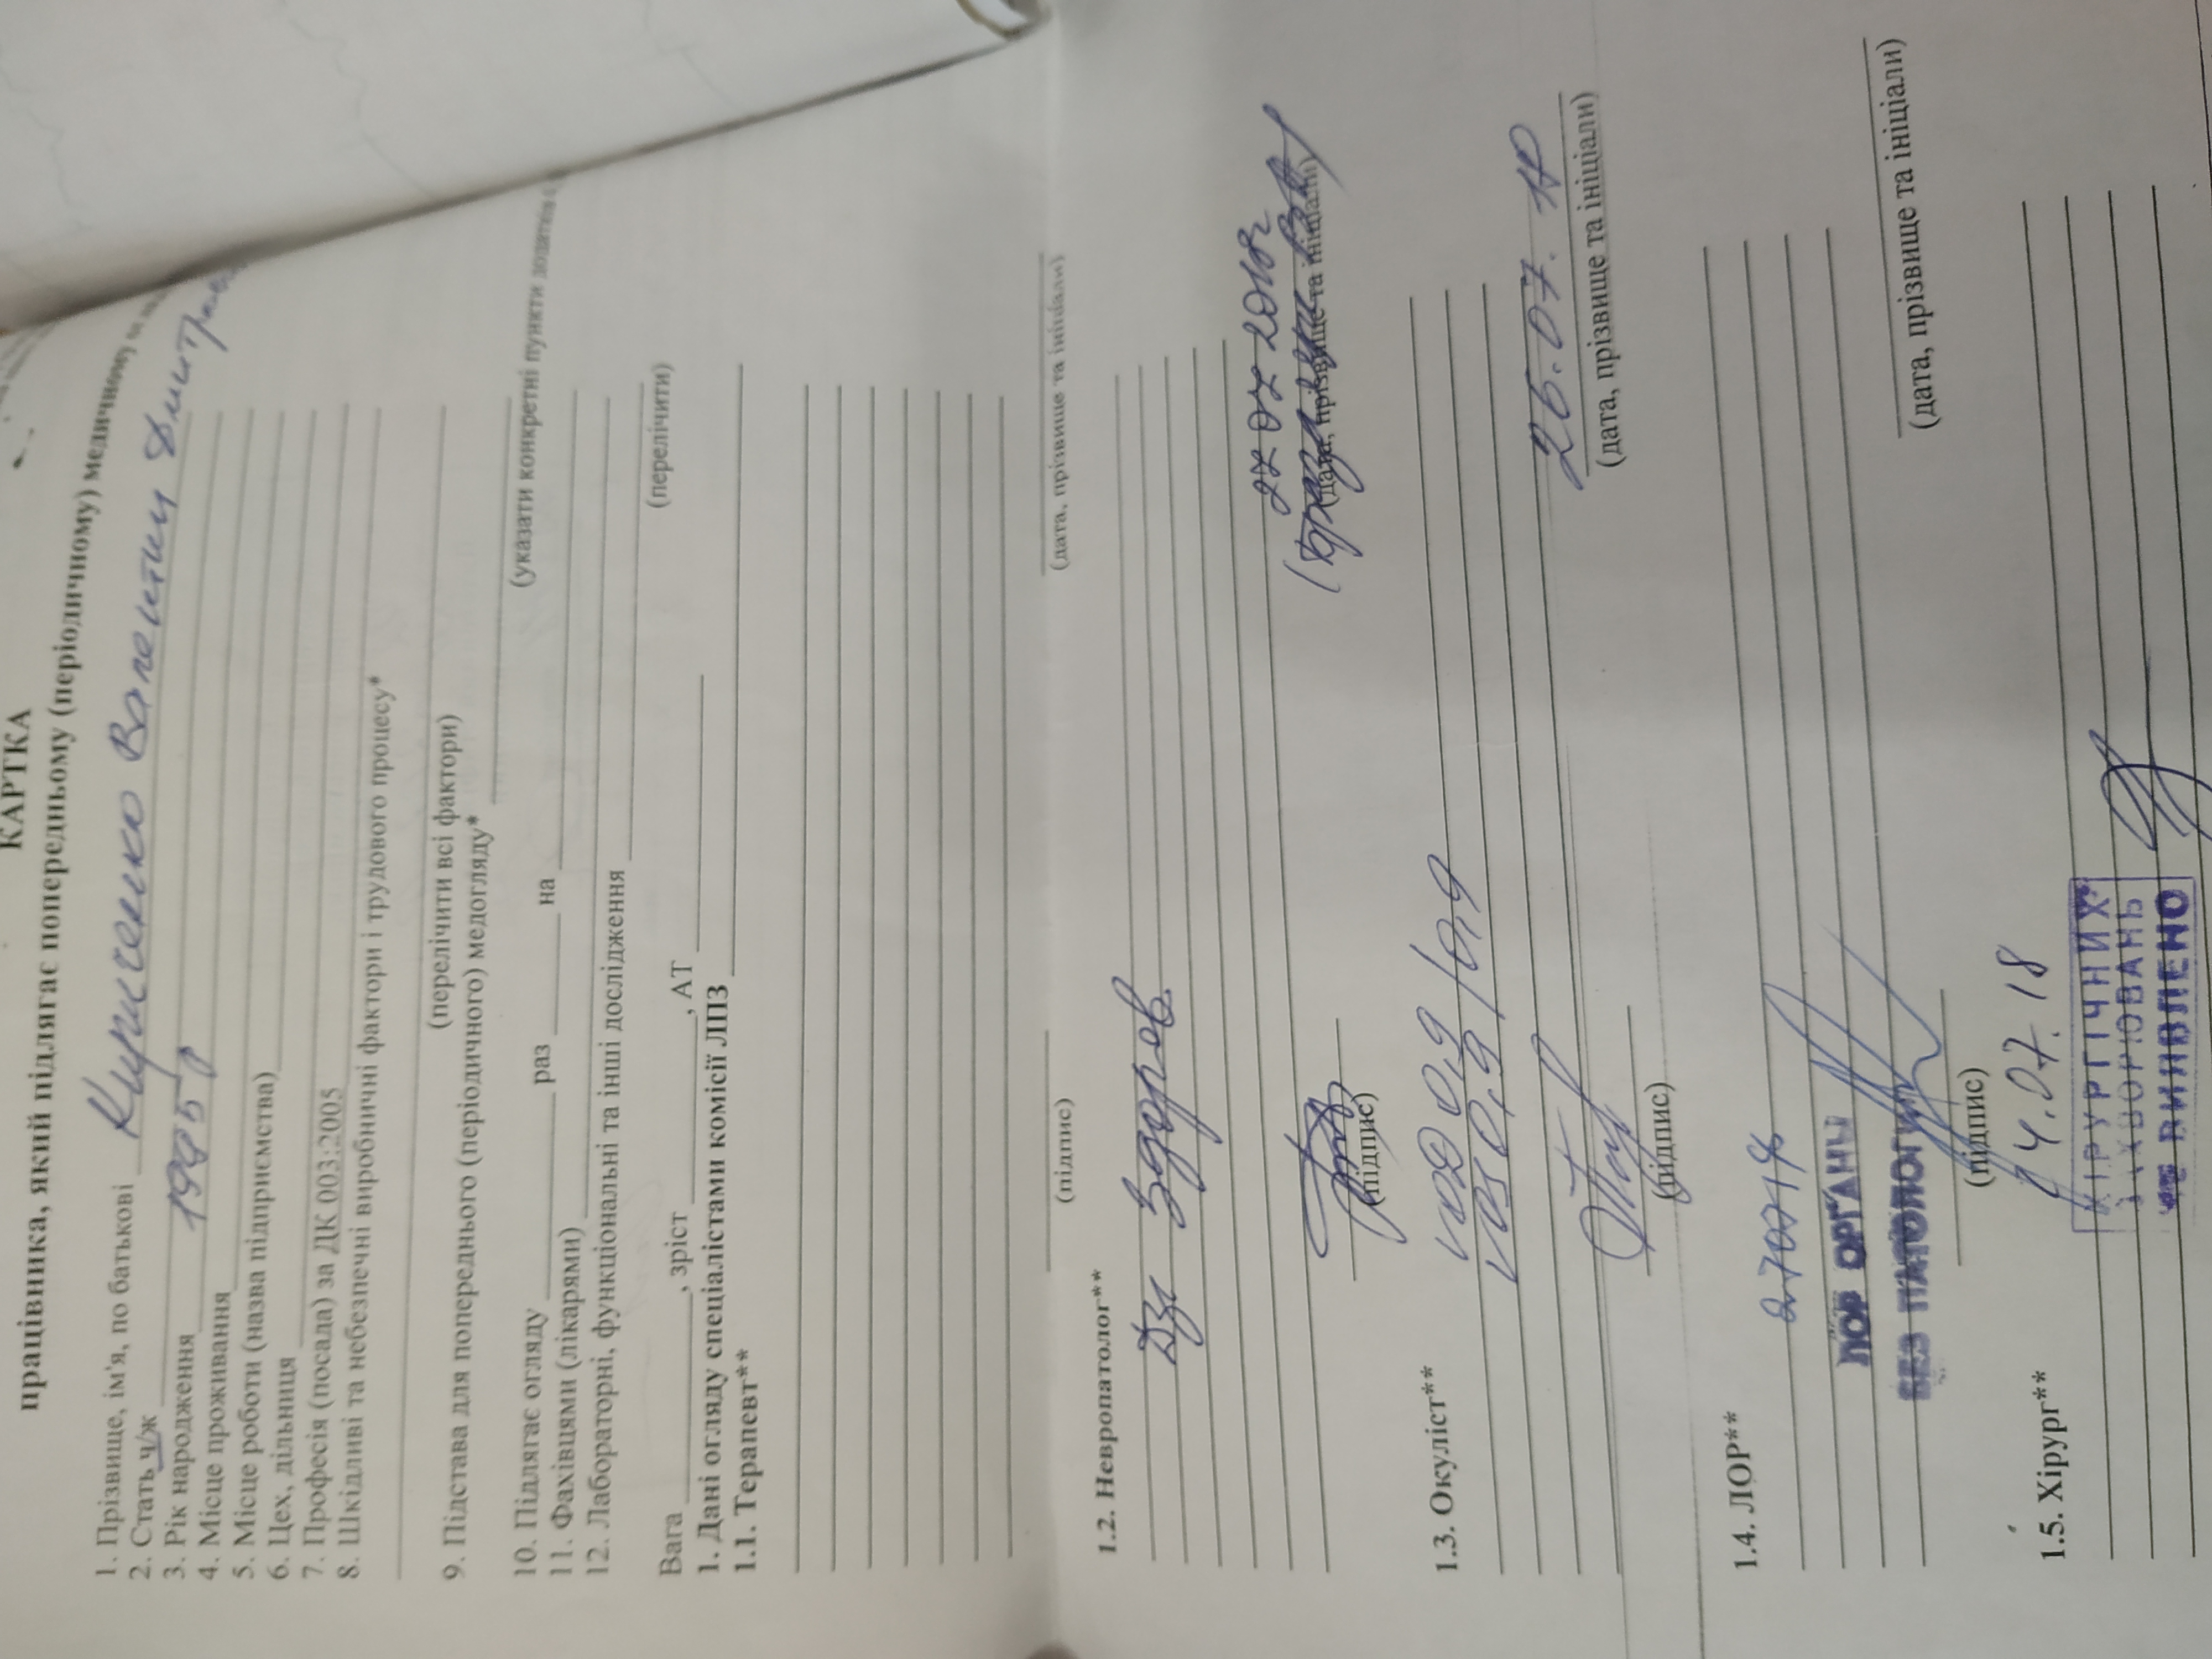 КАРТКА
працівника, який підлягає попередньому (періодичному) медичному
1. Прізвище, ім'я, по батькові Кириченко Валентин
2. Стать ч/ж
3. Рік народження 1995 р
4. Місце проживання
5. Місце роботи (назва підприємства)
6. Цех, дільниця
7. Професія (посада) за ДК 003:2005
8. Шкідливі та небезпечні виробничі фактори і трудового процесу*
(перелічити всі фактори)
9. Підстава для попереднього (періодичного) медогляду*
(указати конкретні пункти додатків
10. Підлягає огляду раз на
11. Фахівцями (лікарями)
12. Лабораторні, функціональні та інші дослідження
(перелічити)
Вага , зріст , АТ
1. Дані огляду спеціалістами комісії ЛПЗ
1.1. Терапевт**
(підпис) (дата, прізвище та ініціали)
1.2. Невропатолог**
Дз: Здоров.
27 07 2018г
(підпис) (дата, прізвище та ініціали)
1.3. Окуліст** VOD 0,9
VOS 0,9 /0,9
26.07. 18
(підпис) (дата, прізвище та ініціали)
1.4. ЛОР**
270718
ЛОР ОРГАНЫ
БЕЗ ПАТОЛОГИИ
(підпис) (дата, прізвище та ініціали)
1.5. Хірург** 24.07.18
ХІРУРГІЧНИХ
ЗАХВОРЮВАНЬ
НЕ ВИЯВЛЕНО